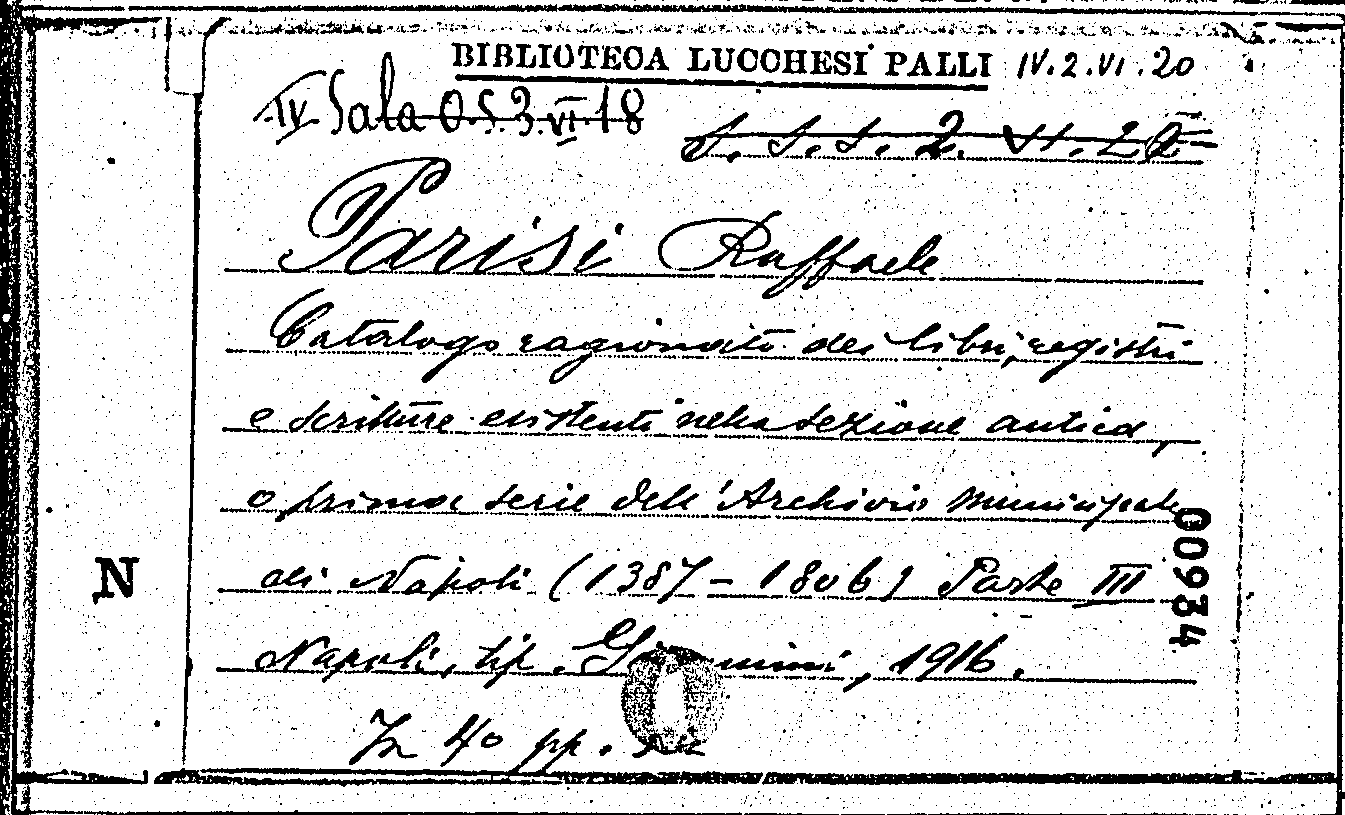 BIBLIOTECA LUCCHESI PALLI IV.2.VI.20
IV Sala 0.5.3.VI.18
S. S. S. 2. VI. 20
Parisi Raffaele
Catalogo ragionato dei libri, registri
e scritture esistenti nella sezione antica,
o prima serie dell'Archivio Municipale
di Napoli (1387-1806) Parte III
N
00934
Napoli, tip. , 1916.
In 4o pp.